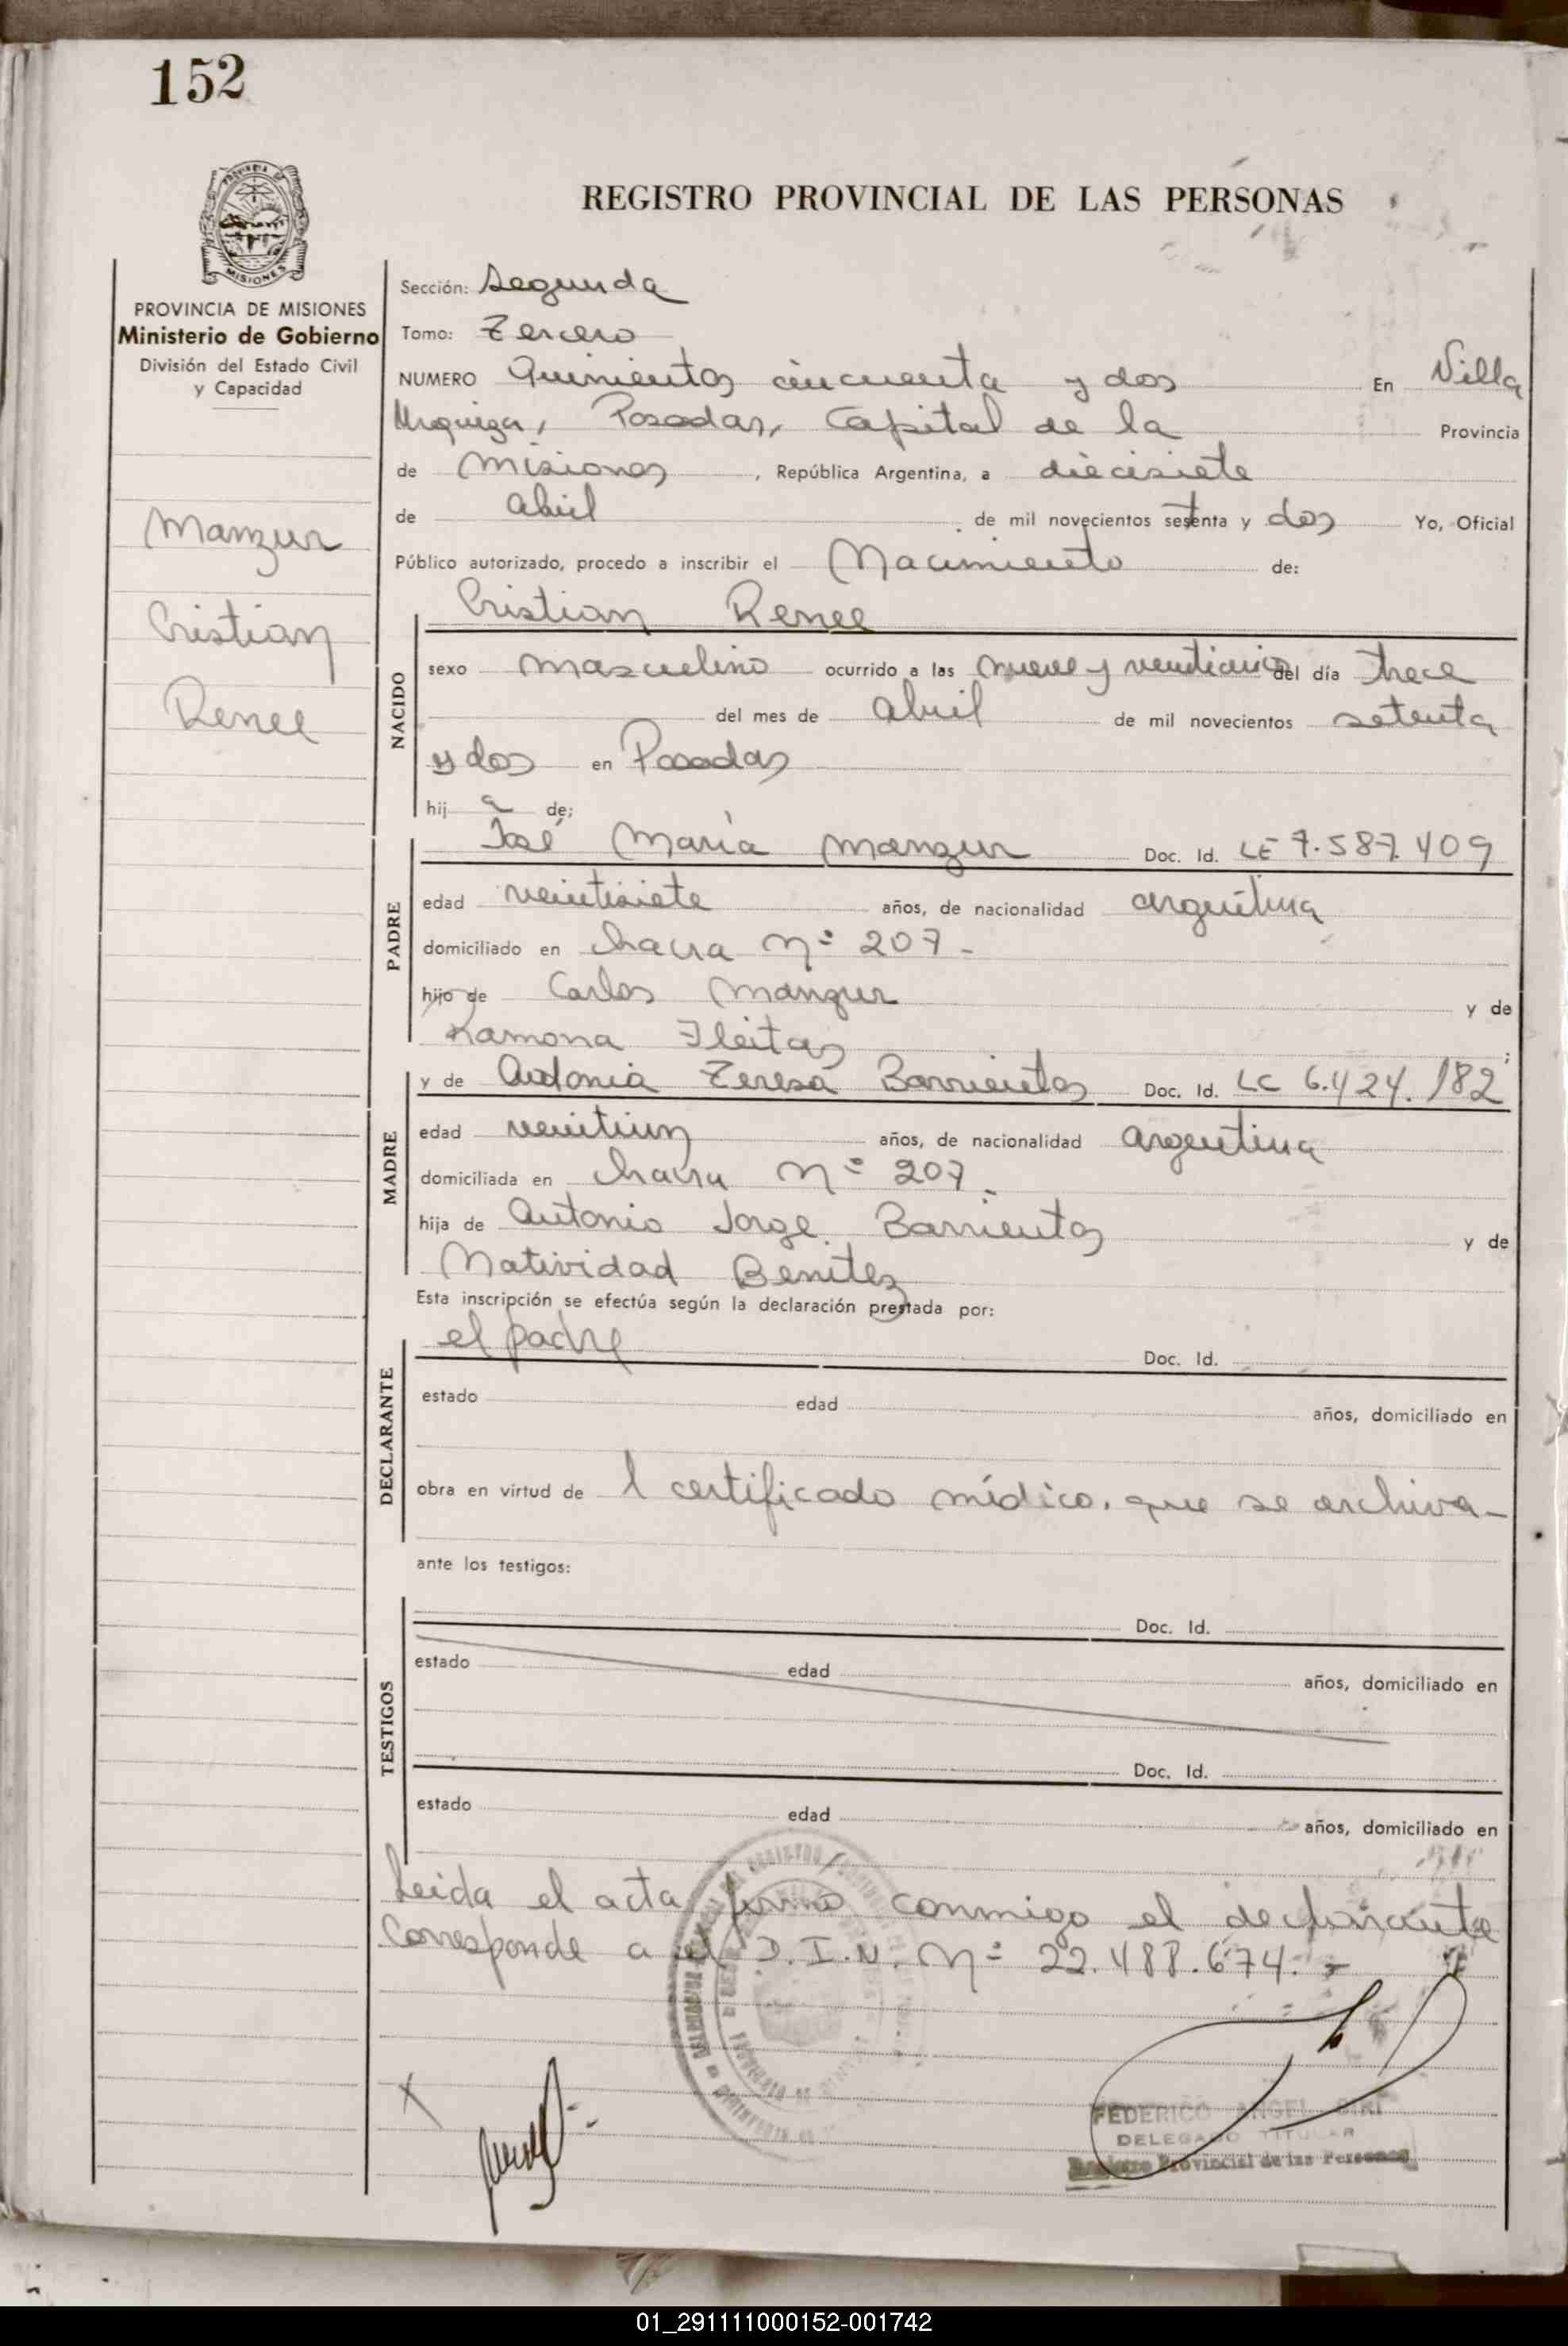 152
REGISTRO PROVINCIAL DE LAS PERSONAS
PROVINCIA DE MISIONES
Ministerio de Gobierno
División del Estado Civil
y Capacidad
Manzur
Cristian
Renee
Sección: Segunda
Tomo: Tercero
NUMERO Quinientos cincuenta y dos En Villa
Urquiza, Posadas, Capital de la Provincia
de Misiones, República Argentina, a diecisiete
de abril de mil novecientos setenta y dos Yo, Oficial
Público autorizado, procedo a inscribir el Nacimiento de:
Cristian Renee
NACIDO
sexo masculino ocurrido a las nueve y veinticinco del día trece
del mes de abril de mil novecientos setenta
y dos en Posadas
hij a de;
PADRE
José María Manzur Doc. Id. LE 7.587.409
edad veintisiete años, de nacionalidad argentina
domiciliado en chacra Nº 207.-
hijo de Carlos Manzur y de
Ramona Fleitas
MADRE
y de Teresa Barrientos Doc. Id. LC 6.424.182
edad veintiun años, de nacionalidad argentina
domiciliada en chacra Nº 207.
hija de Antonio Jorge Barrientos y de
Natividad Benitez
Esta inscripción se efectúa según la declaración prestada por:
DECLARANTE
el padre Doc. Id.
estado edad años, domiciliado en
obra en virtud de l certificado médico, que se archiva-
ante los testigos:
TESTIGOS
Doc. Id.
estado edad años, domiciliado en
Doc. Id.
estado edad años, domiciliado en
Leida el acta, firmó conmigo el declarante
Corresponde a el D.I.N. Nº 22.488.674.-
FEDERICO ANGEL SIRI
DELEGADO TITULAR
Registro Provincial de las Personas
01_291111000152-001742